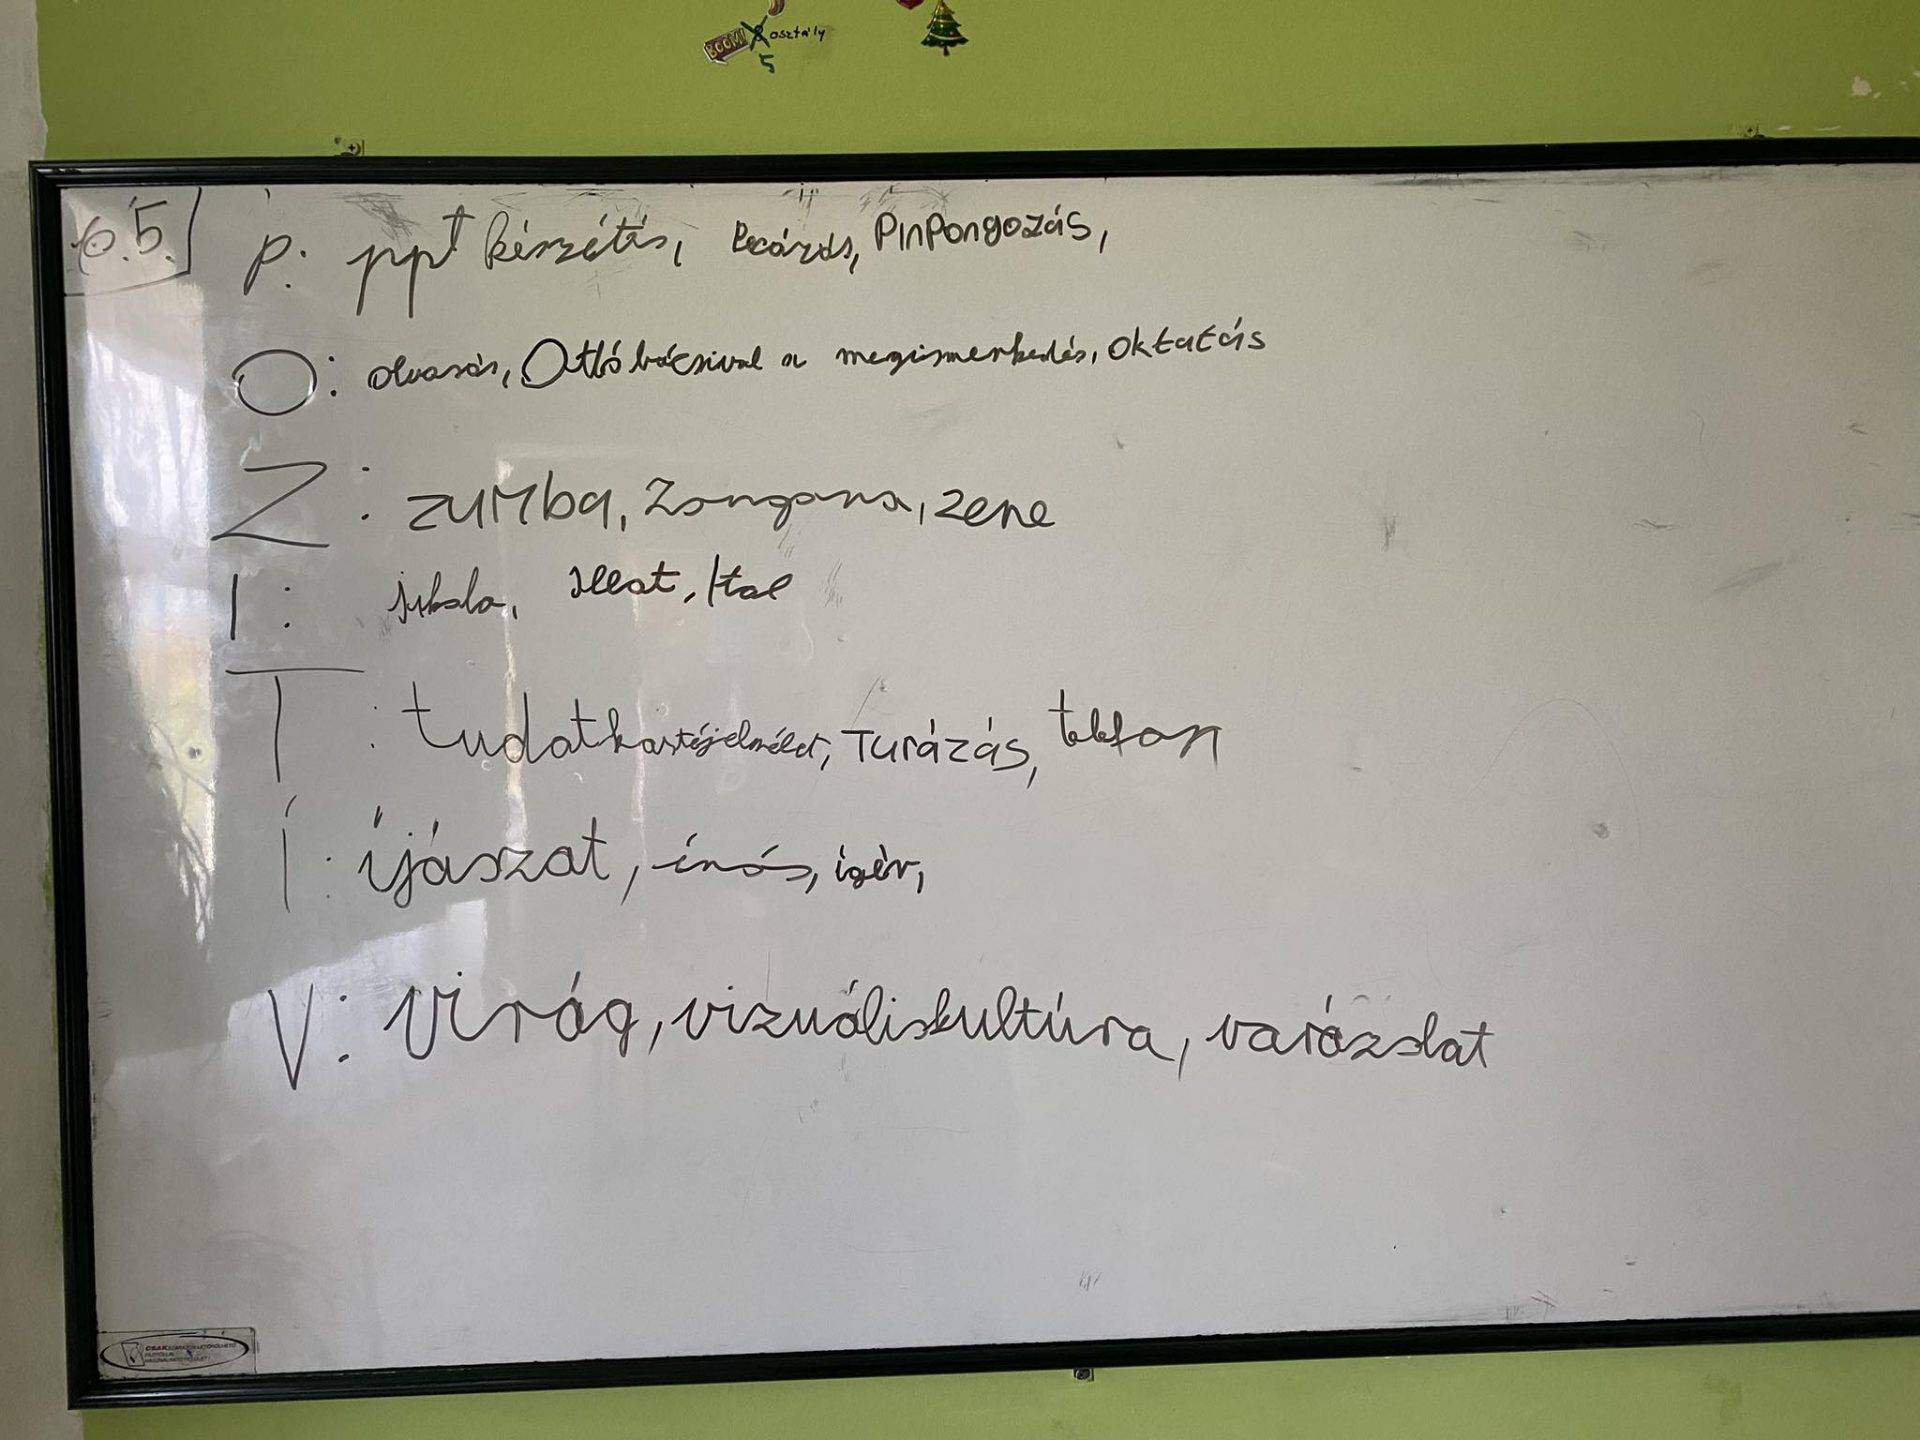 BOOM! 8 osztály
5
6.5.
P: ppt készítés, Pecázás, PinPongozás,
O: olvasás, Ottó bácsival a megismerkedés, oktatás
Z: zumba, Zongora, zene
I: iskola, Illat, Ital
T: tudatkastéjelmélet, Turázás, telefon
Í: íjászat, írás, ígér,
V: Virág, vizuáliskultúra, varázslat